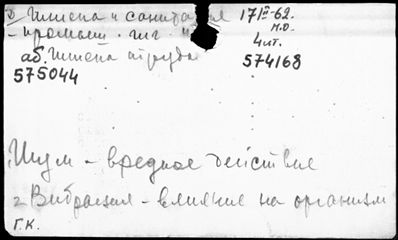 2) Гигиена и санитария 17/II-62.
- промышл. гиг. М.О.
аб. Гигиена труда 4 лит.
575044 574168
Шум - вредное действие
2 Вибрация - влияние на организм
Г.К.